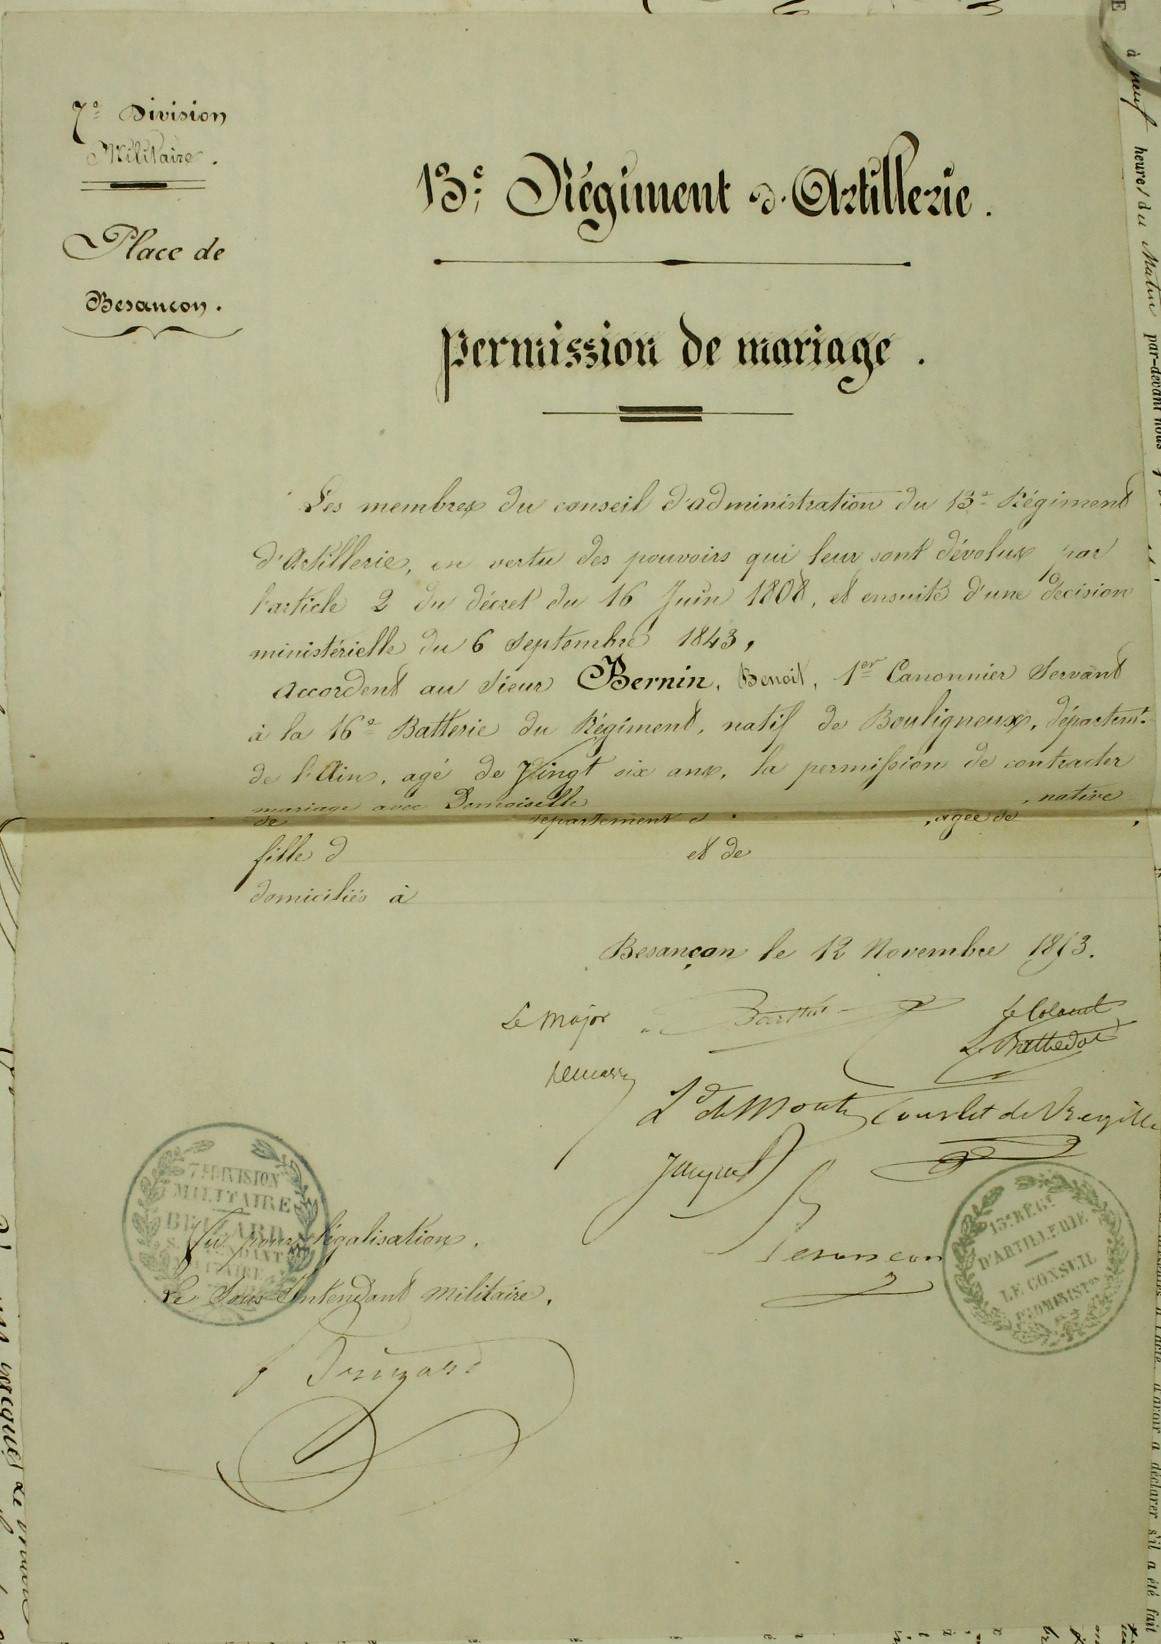 7e Division
Militaire.
Place de
Besançon.
13e Régiment d'Artillerie.
permission de mariage.
Les membres du conseil d'administration du 13e Régiment
d'Artillerie, en vertu des pouvoirs qui leur sont dévolus par
l'article 2 du décret du 16 Juin 1808, et ensuite d'une décision
ministérielle du 6 Septembre 1843,
accordent au Sieur Bernin, Benoit, 1er Canonnier Servant
à la 16e Batterie du Régiment, natif de Bouligneux, départemt.
de l'Ain, agé de Vingt six ans, la permission de contracter
mariage avec Demoiselle , native
de département d , agée de ,
fille d et de
domiciliés à
Besançon le 12 Novembre 1843.
Le Major
Le Colonel
Vu pour légalisation.
Le Sous Intendant militaire.
7e DIVISION
MILITAIRE
13e RÉGt
D'ARTILLERIE
LE CONSEIL
D'ADMINISTon
à neuf heures du Matin par-devant nous